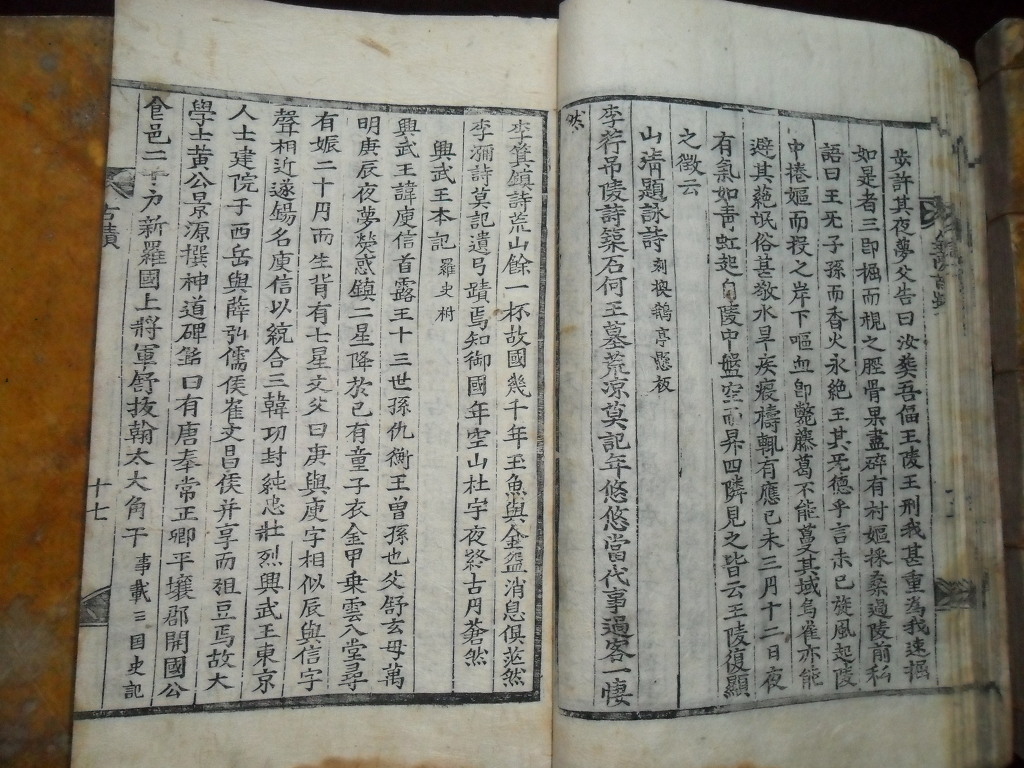 安許其夜夢父告曰汝葬吾偪王陵王刑我甚重為我速掘
如是者三卽掘而視之脛骨果盡碎有村嫗採桑過陵前私
語曰王旡子孫而香火永絶王其旡徳乎言未已旋風起陵
中捲嫗而投之岸下嘔血卽斃藤葛不能蔓其域烏雀亦能
避其葩氓俗甚敬水旱疾疫禱輒有應己未三月十二日夜
有氣如靑虹起自陵中盤空而昇四隣見之皆云王陵復顯
之徵云
山淸題詠詩 刺換鵝亭懸板
李荇吊陵詩築石何王墓荒凉莫記年悠悠當代事過客一悽
然
李箕鎭詩荒山餘一杯故國幾千年玉魚與金盌消息俱茫然
李瀰詩莫記遺弓蹟焉知御國年空山杜宇夜終古月蒼然
興武王本記 羅史附
興武王諱庾信首露王十三世孫仇衡王曾孫也父舒玄母萬
明庚辰夜夢熒惑鎭二星降於己有童子衣金甲乘雲入堂尋
有娠二十月而生背有七星文父曰庚與庾字相似辰與信字
聲相近遂錫名庾信以統合三韓功封純忠壯烈興武王東京
人士建院于西岳與薛弘儒侯崔文昌侯并享而俎豆焉故大
學士黃公景源撰神道碑銘曰有唐奉常正卿平壤郡開國公
食邑二千戶新羅國上將軍舒拔翰太大角干 事載三國史記
古蹟
十七